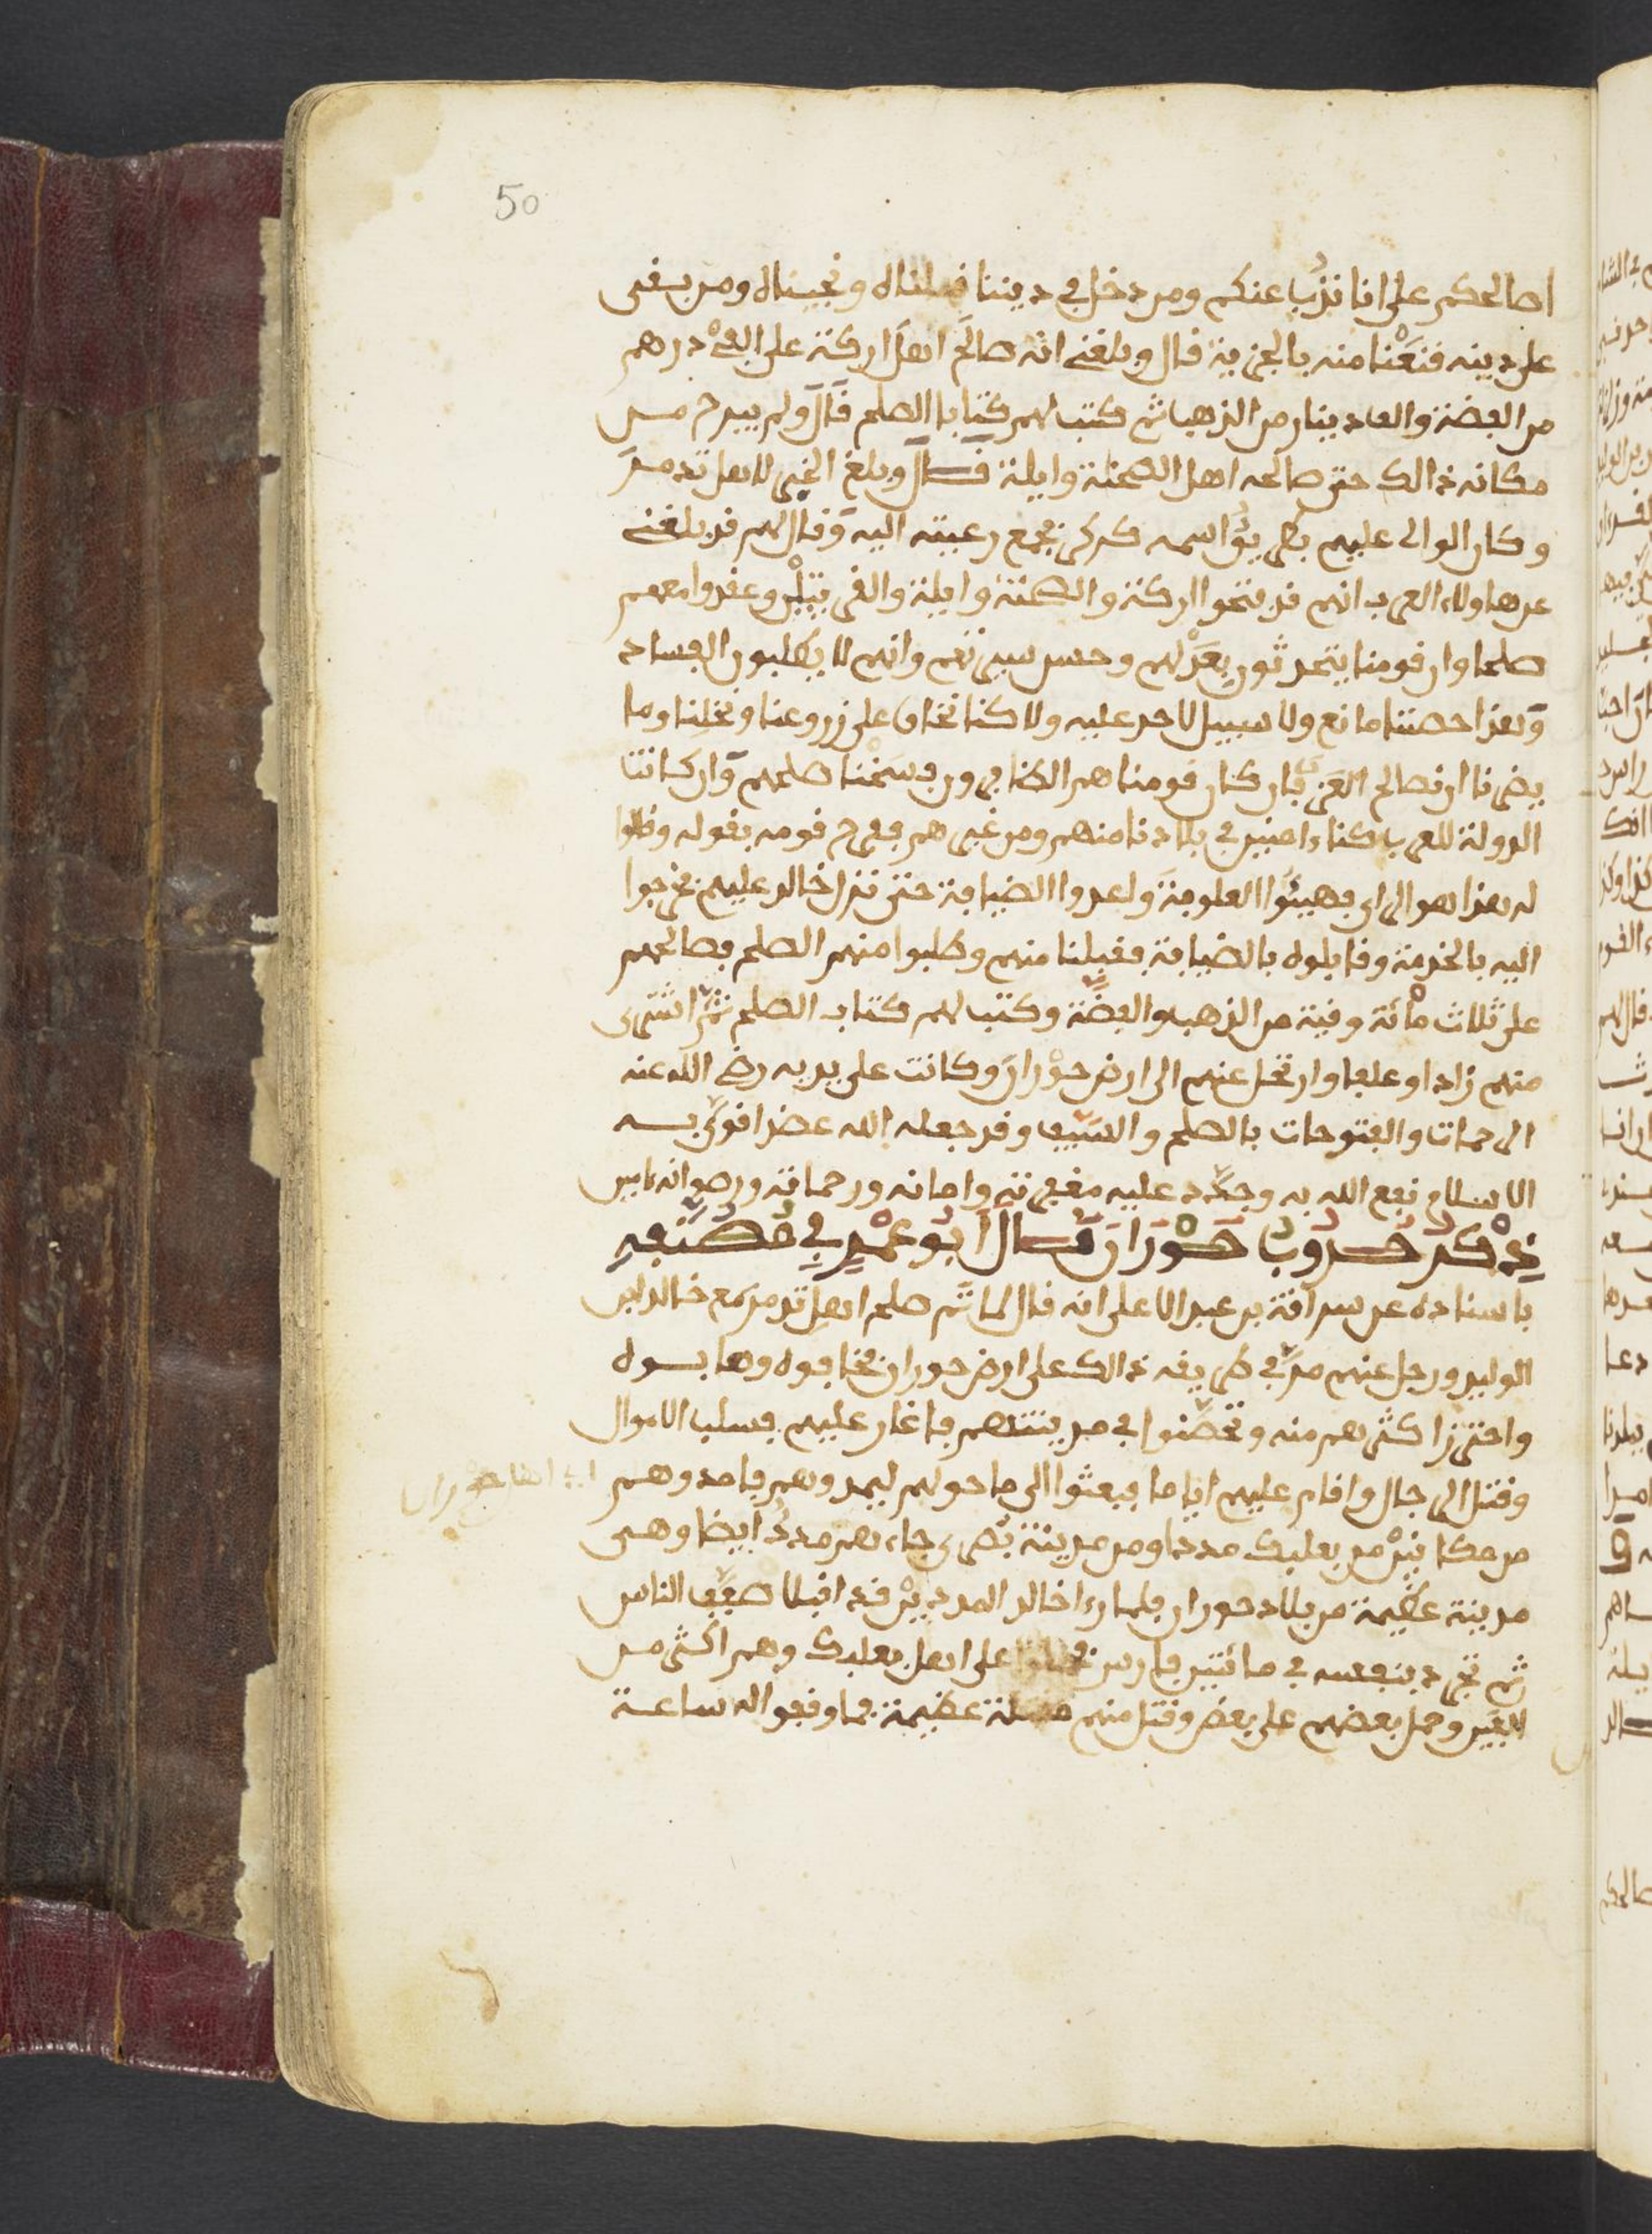 50
اصالحكم على انا نذب عنكم ومن دخل في ديننا قبلناه ونجيناه ومن بقى
على دينه قنعنا منه بالجزية قال وبلغني انه صالح اهل اركة على الفي درهم
من الفضة والف دينار من الذهب ثم كتب لهم كتابا الصلح قال ولم يبرح من
مكانه ذالك حتى صالحه اهل السخنة وايلة قال وبلغ الخبر لاهل تدمر
وكان الوالي عليهم بطريق اسمه كركر فجمع رعيته اليه وقال لهم قد بلغني
عن هاولاء العرب انهم قد فتحوا اركة والسخنة وايلة والقريتين وعقدوا معهم
صلحا وان قومنا يتحدثون بعدلهم وحسن سيرتهم وانهم لا يطلبون الفساد
وهذا حصننا مانع ولا سبيل لاحد عليه ولاكنا نخاف على زروعنا ونخلنا وما
يضرنا ان نصالح العرب فان كان قومنا هم الظافرون فسخنا صلحهم وان كانت
الدولة للعرب كنا ءامنين في بلادنا منهم ومن غيرهم ففرح قومه بقوله وقالوا
له هذا هو الراي فهيئوا العلوفة واعدوا الضيافة حتى نزل خالد عليهم فخرجوا
اليه بالخدمة وقابلوه بالضيافة فقبلنا منهم وطلبوا منهم الصلح فصالحهم
على ثلاث مائة وقية من الذهب والفضة وكتب لهم كتاب الصلح ثم اشترى
منهم زادا وعلفا وارتحل عنهم الى ارض حوران وكانت على يديه رضي الله عنه
الرحمات والفتوحات بالصلح والسيف وقد جعله الله عضدا قوى به
الاسلام نفع الله به وجدد عليه مغفرته وامانه ورحماته ورضوانه ءامين
ذكر حروب حوران قال ابو عمر في مصنفه
باسناده عن سراقة بن عبد الاعلى انه قال لما تم صلح اهل تدمر مع خالد ابن
الوليد ورحل عنهم مر في طريقه ذالك على ارض حوران فخافوه وهابوه
واحترز اكثرهم منه وتحصنوا في مدينتهم فاغار عليهم فسلب الاموال
وقتل الرجال واقام عليهم اياما فبعثوا الى ما حولهم ليمدوهم فامدوهم
من مكانين من بعلبك مددا ومن مدينة بصرى جاءهم مدد ايضا وهي
مدينة عظيمة من بلاد حوران فلما رءا خالد المددين قد اقبلا صفف الناس
ثم تجرد بنفسه في مائتين فارس على اهل بعلبك وهم اكثر من
الفين وحمل بعضهم على بعض وقتل منهم عظيمة فما وقفوا له ساعة